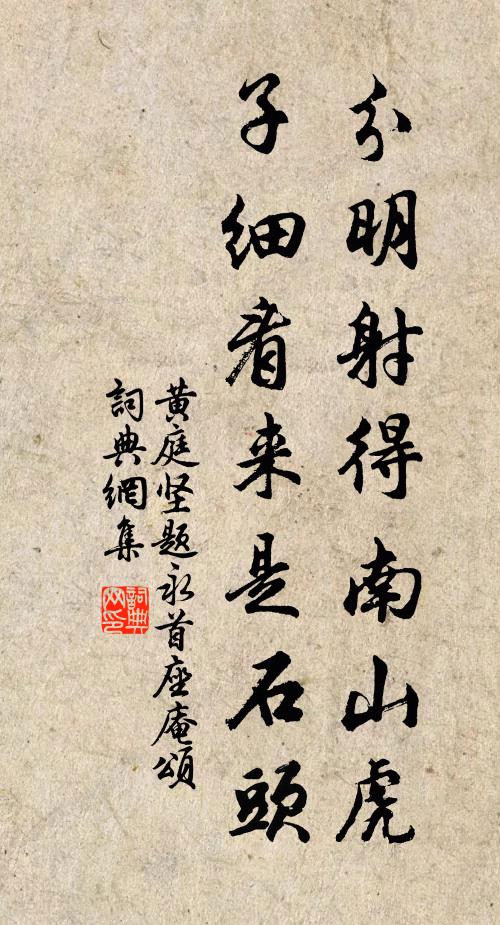 分明射得南山虎
子细看来是石頭
黄庭坚题永首座庵頌
詞典網集
詞典网印